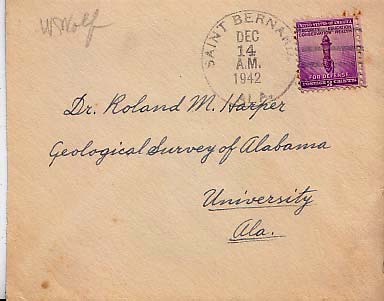 WWolf
SAINT BERNARD
DEC
14
A.M.
1942
ALA.
UNITED STATES OF AMERICA
FOR DEFENSE
Dr. Roland M. Harper
Geological Survey of Alabama
University
Ala.